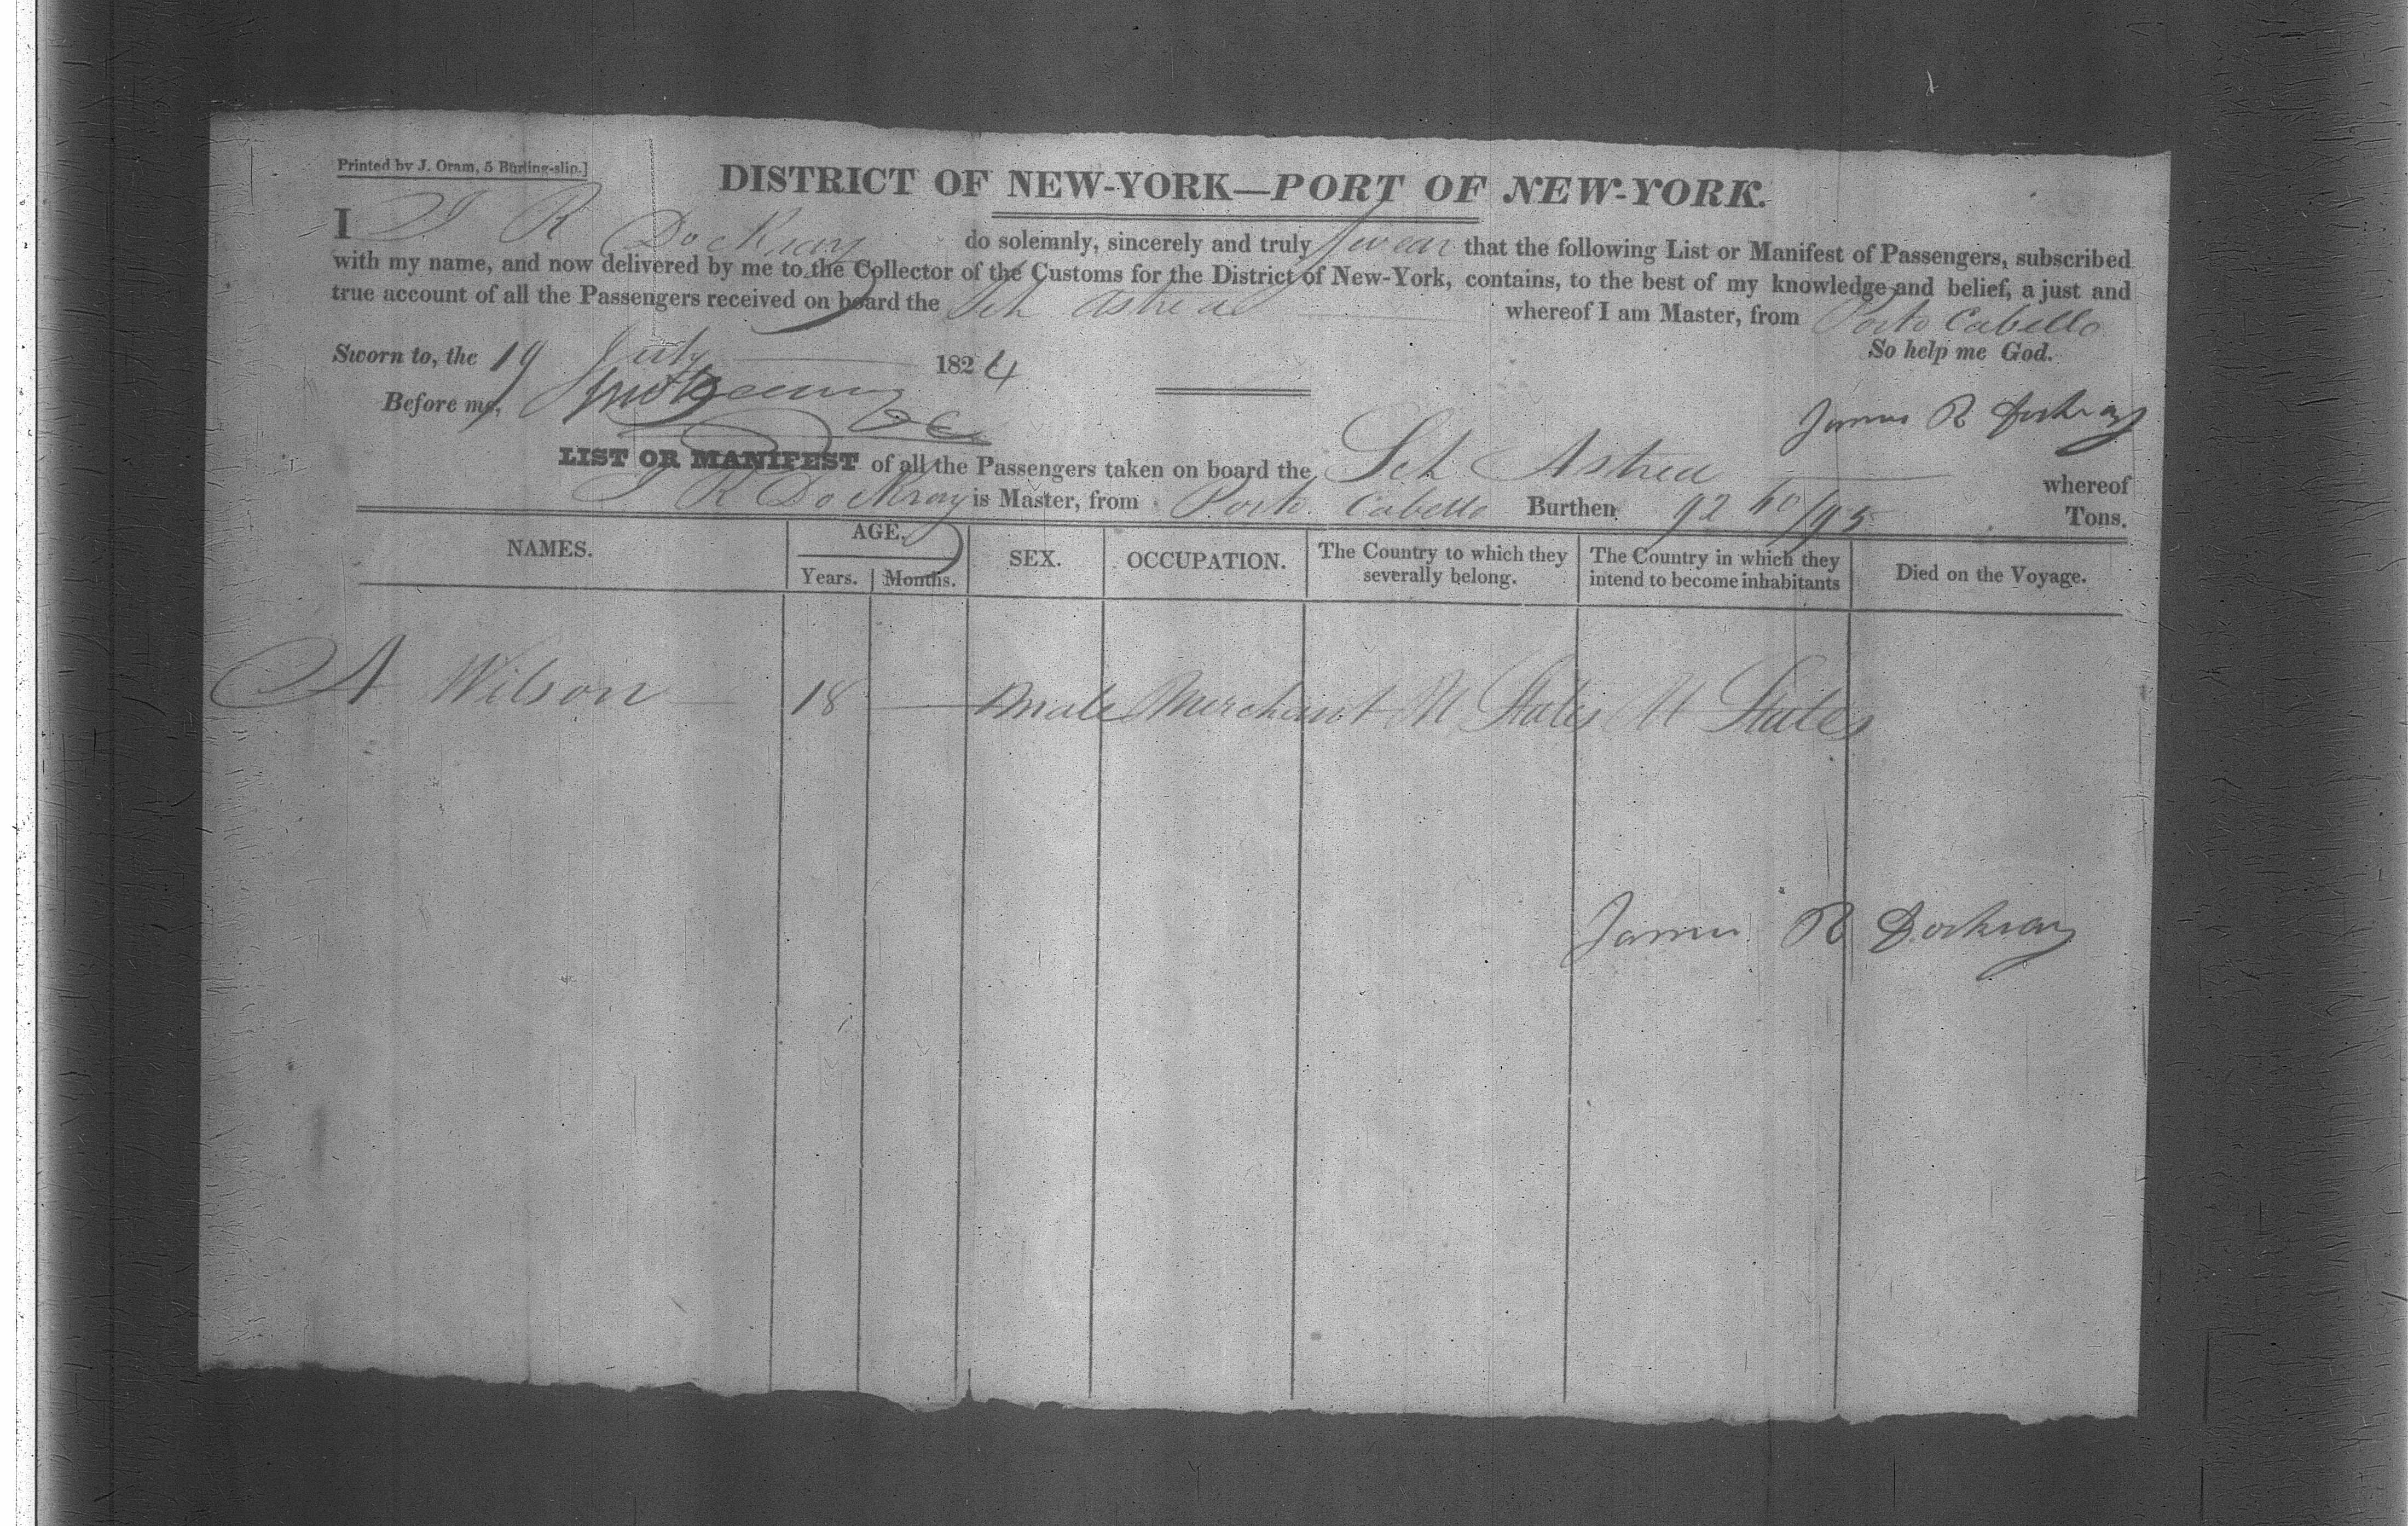 Printed by J. Oram, 5 Burling-slip.]
DISTRICT OF NEW-YORK—PORT OF NEW-YORK.
I J R Dockray do solemnly, sincerely and truly swear that the following List or Manifest of Passengers, subscribed
with my name, and now delivered by me to the Collector of the Customs for the District of New-York, contains, to the best of my knowledge and belief, a just and
true account of all the Passengers received on board the Sch Astrea whereof I am Master, from Porto Cabello
Sworn to, the 19 July 1824 So help me God.
Before me,
James R Dockray
LIST OR MANIFEST of all the Passengers taken on board the Sch Astrea whereof
J R Dockray is Master, from Porto Cabello Burthen 92 60/95 Tons.
NAMES. AGE. SEX. OCCUPATION. The Country to which they severally belong. The Country in which they intend to become inhabitants Died on the Voyage.
Years. Months.
A Wilson 18 male Merchant U States U States
James R Dockray